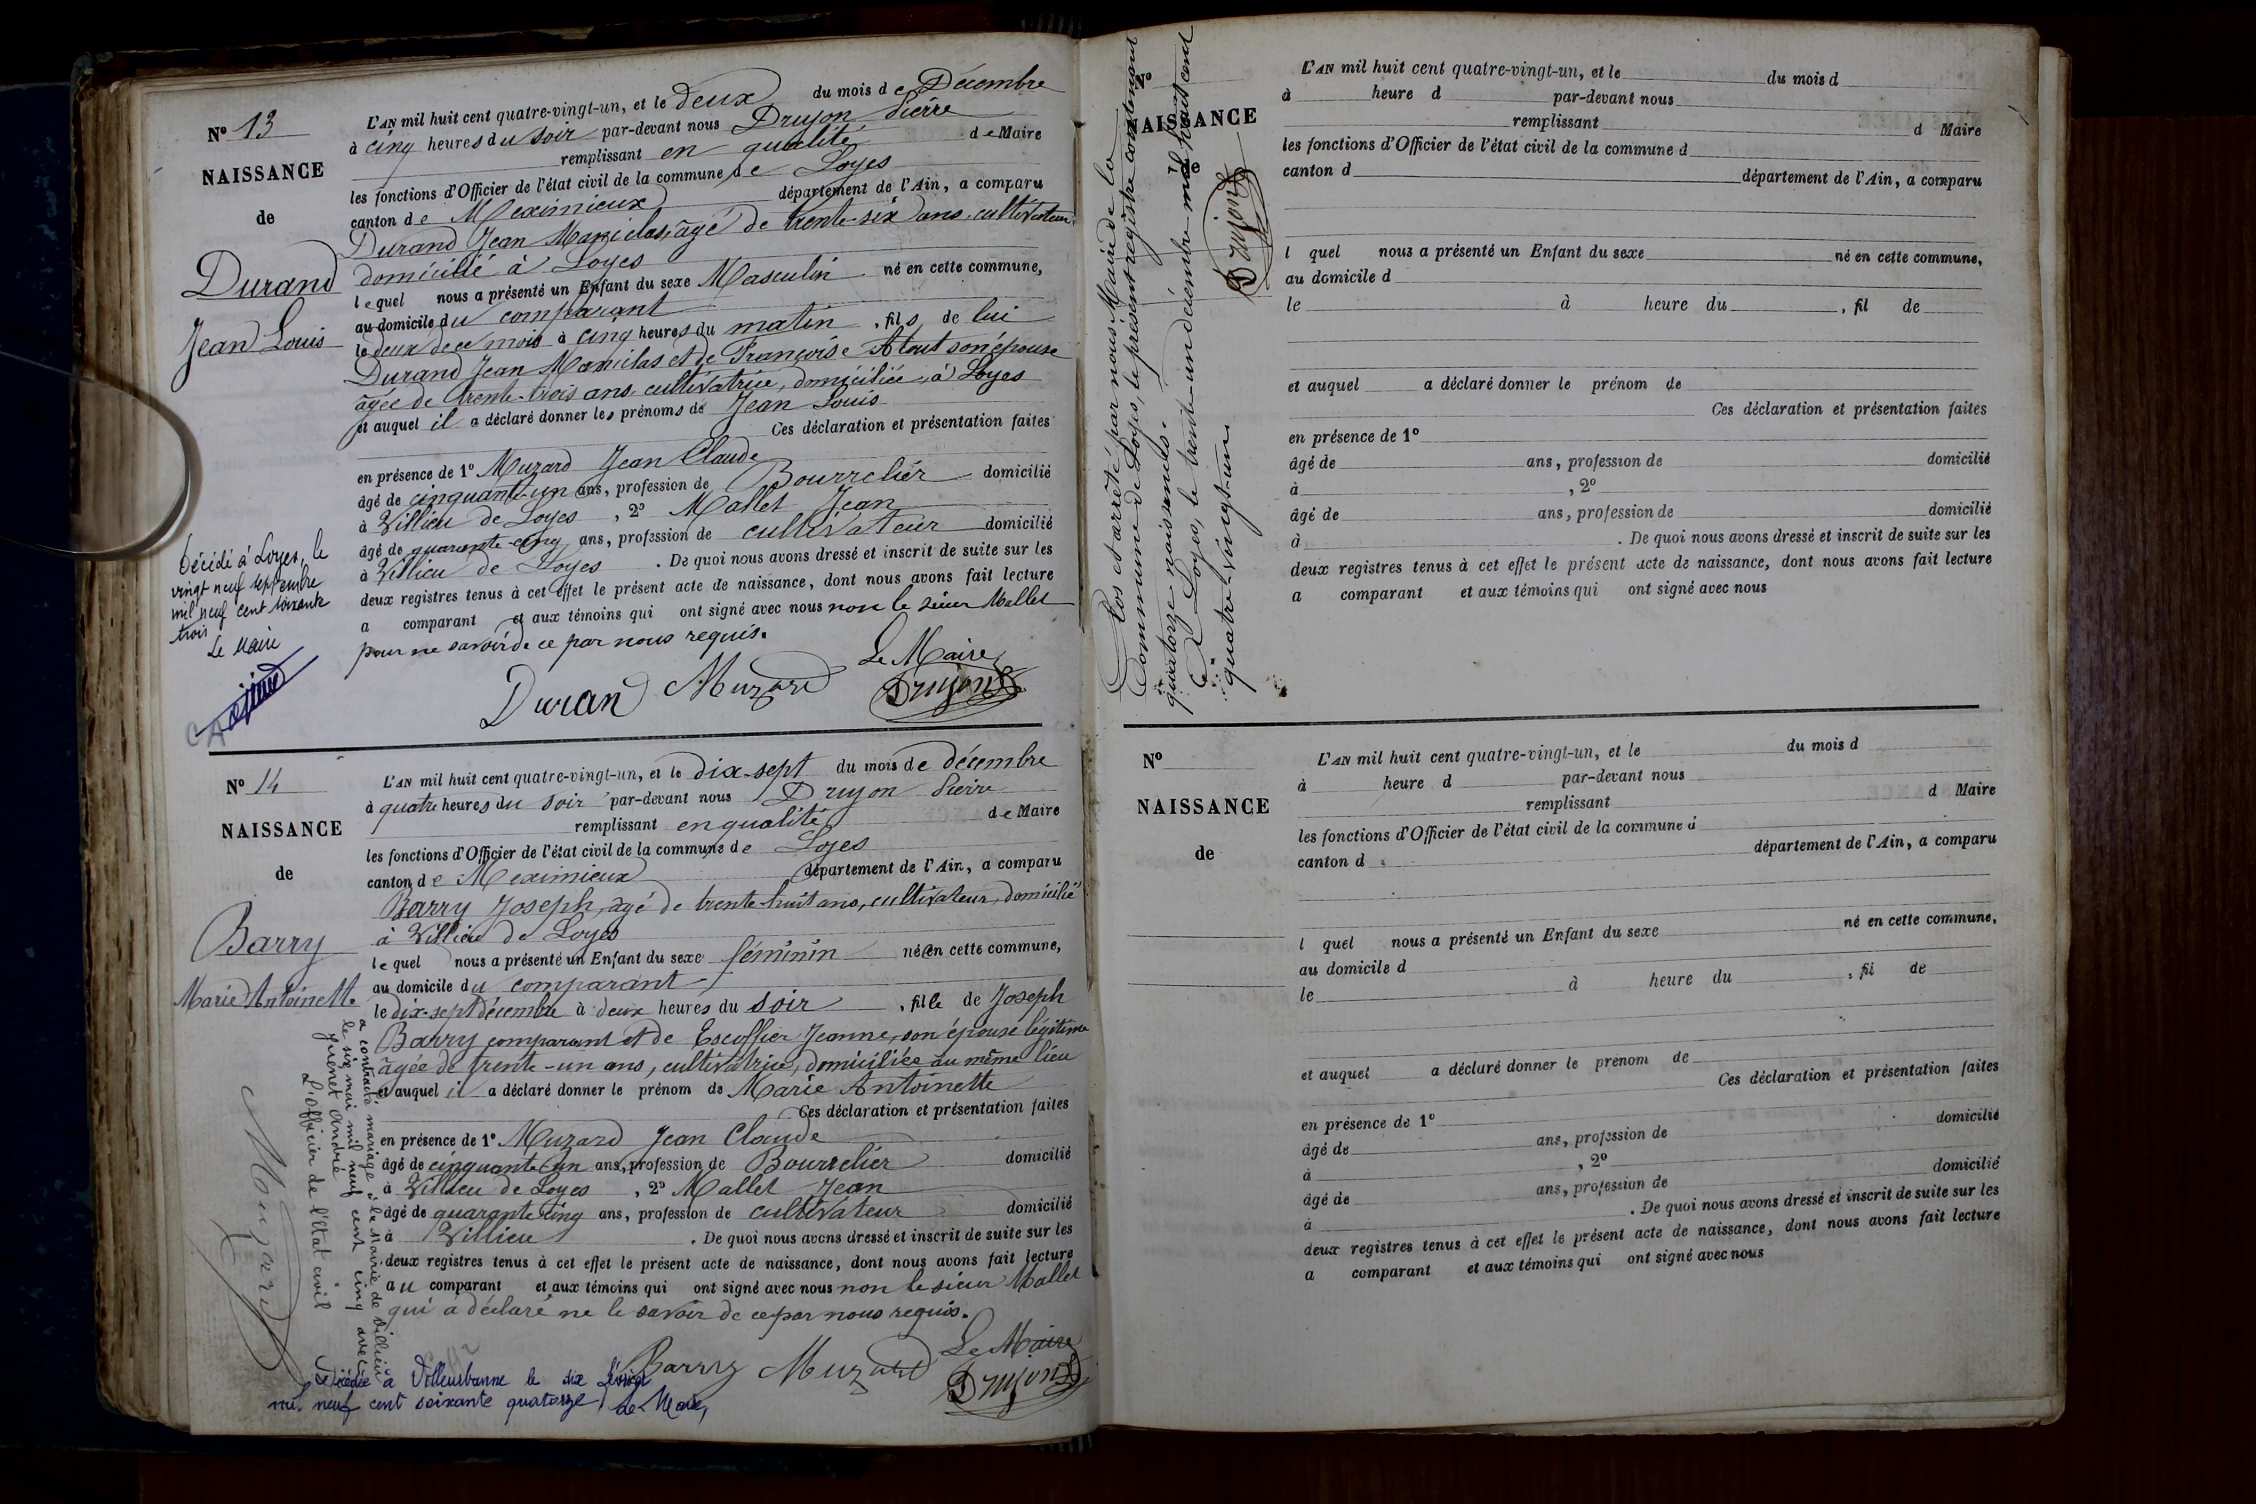 N° 13
NAISSANCE
de
Durand
Jean Louis
Décédé à Loyes, le
vingt neuf septembre
mil neuf cent soixante
trois
Le Maire
L'AN mil huit cent quatre-vingt-un, et le deux du mois de Décembre
à cinq heures du soir par-devant nous Drujon Pierre
remplissant en qualité de Maire
les fonctions d'Officier de l'état civil de la commune de Loyes
canton de Meximieux département de l'Ain, a comparu
Durand Jean Marie âgé de trente-six ans, cultivateur
domicilié à Loyes
lequel nous a présenté un Enfant du sexe Masculin né en cette commune,
au domicile du comparant
le deux de ce mois à cinq heures du matin, fils de lui
Durand Jean et de Françoise Atout son épouse
âgée de trente-trois ans cultivatrice, domiciliée à Loyes
et auquel il a déclaré donner les prénoms de Jean Louis
Ces déclaration et présentation faites
en présence de 1° Muzard Jean Claude
âgé de cinquante-un ans, profession de Bourrelier domicilié
à Villieu de Loyes, 2° Mallet Jean
âgé de quarante-cinq ans, profession de cultivateur domicilié
à Villieu de Loyes. De quoi nous avons dressé et inscrit de suite sur les
deux registres tenus à cet effet le présent acte de naissance, dont nous avons fait lecture
a comparant et aux témoins qui ont signé avec nous non le sieur Mallet
pour ne savoir de ce par nous requis.
Le Maire
Duran Muzard Drujon
N° 14
NAISSANCE
de
Barry
Marie Antoinette
a contracté mariage à la Mairie de Villieu
le six mai mil neuf cent cinq avec
Guenet André
L'officier de l'Etat civil
Mouzard
L'AN mil huit cent quatre-vingt-un, et le dix-sept du mois de décembre
à quatre heures du soir par-devant nous Drujon Pierre
remplissant en qualité de Maire
les fonctions d'Officier de l'état civil de la commune de Loyes
canton de Meximieux département de l'Ain, a comparu
Barry Joseph, âgé de trente-huit ans, cultivateur, domicilié
à Villieu de Loyes
lequel nous a présenté un Enfant du sexe féminin née en cette commune,
au domicile du comparant
le dix-sept décembre à deux heures du soir, fille de Joseph
Barry comparant et de Escoffier Jeanne, son épouse légitime
âgée de trente-un ans, cultivatrice, domiciliée au même lieu
et auquel il a déclaré donner le prénom de Marie Antoinette
Ces déclaration et présentation faites
en présence de 1° Muzard Jean Claude
âgé de cinquante-un ans, profession de Bourrelier domicilié
à Villieu de Loyes, 2° Mallet Jean
âgé de quarante-cinq ans, profession de cultivateur domicilié
à Villieu. De quoi nous avons dressé et inscrit de suite sur les
deux registres tenus à cet effet le présent acte de naissance, dont nous avons fait lecture
au comparant et aux témoins qui ont signé avec nous non le sieur Mallet
qui a déclaré ne le savoir de ce par nous requis.
Le Maire
Barry Muzard Drujon
Décédée à Villeurbanne le dix février
mil neuf cent soixante quatorze Le Maire,
Clos et arrêté par nous, Maire de la
Commune de Loyes, le présent registre contenant
quatorze naissances.
à Loyes, le trente-un décembre mil huit cent
quatre-vingt-un
Drujon
N°
NAISSANCE
de
L'AN mil huit cent quatre-vingt-un, et le du mois d
à heure d par-devant nous
remplissant d Maire
les fonctions d'Officier de l'état civil de la commune d
canton d département de l'Ain, a comparu
l quel nous a présenté un Enfant du sexe né en cette commune,
au domicile d
le à heure du, fil de
et auquel a déclaré donner le prénom de
Ces déclaration et présentation faites
en présence de 1°
âgé de ans, profession de domicilié
à, 2°
âgé de ans, profession de domicilié
à. De quoi nous avons dressé et inscrit de suite sur les
deux registres tenus à cet effet le présent acte de naissance, dont nous avons fait lecture
a comparant et aux témoins qui ont signé avec nous
N°
NAISSANCE
de
L'AN mil huit cent quatre-vingt-un, et le du mois d
à heure d par-devant nous
remplissant d Maire
les fonctions d'Officier de l'état civil de la commune d
canton d département de l'Ain, a comparu
l quel nous a présenté un Enfant du sexe né en cette commune,
au domicile d
le à heure du, fil de
et auquel a déclaré donner le prénom de
Ces déclaration et présentation faites
en présence de 1°
âgé de ans, profession de domicilié
à, 2°
âgé de ans, profession de domicilié
à. De quoi nous avons dressé et inscrit de suite sur les
deux registres tenus à cet effet le présent acte de naissance, dont nous avons fait lecture
a comparant et aux témoins qui ont signé avec nous